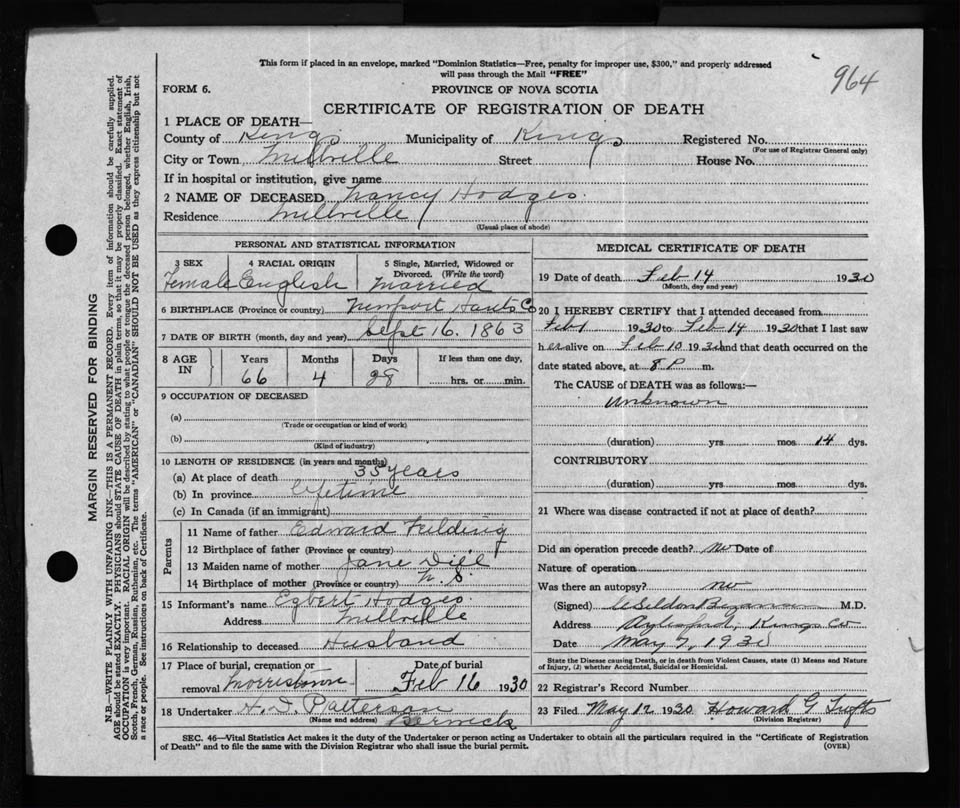 This form if placed in an envelope, marked "Dominion Statistics—Free, penalty for improper use, $300," and properly addressed
will pass through the Mail "FREE"
964
FORM 6.
PROVINCE OF NOVA SCOTIA
CERTIFICATE OF REGISTRATION OF DEATH
1 PLACE OF DEATH—
County of Kings Municipality of Kings Registered No.
(For use of Registrar General only)
City or Town Millville Street House No.
If in hospital or institution, give name
2 NAME OF DECEASED Nancy Hodges.
Residence Millville
(Usual place of abode)
PERSONAL AND STATISTICAL INFORMATION
3 SEX 4 RACIAL ORIGIN 5 Single, Married, Widowed or Divorced. (Write the word)
Female English Married
6 BIRTHPLACE (Province or country) Newport Hants Co
7 DATE OF BIRTH (month, day and year) Sept 16. 1863
8 AGE IN Years Months Days If less than one day,
66 4 28 hrs. or min.
9 OCCUPATION OF DECEASED
(a)
(Trade or occupation or kind of work)
(b)
(Kind of industry)
10 LENGTH OF RESIDENCE (in years and months)
(a) At place of death 35 years
(b) In province lifetime
(c) In Canada (if an immigrant)
Parents
11 Name of father Edward Fielding
12 Birthplace of father (Province or country)
13 Maiden name of mother Jane
14 Birthplace of mother (Province or country) N. S.
15 Informant's name Egbert Hodges
Address Millville
16 Relationship to deceased Husband
17 Place of burial, cremation or removal Morristown Date of burial Feb 16 1930
18 Undertaker H. D. Patterson
(Name and address) Berwick
MEDICAL CERTIFICATE OF DEATH
19 Date of death Feb 14 1930
(Month, day and year)
20 I HEREBY CERTIFY that I attended deceased from
Feb 1 1930 to Feb 14 1930 that I last saw
h er alive on Feb 10 1930 and that death occurred on the
date stated above, at 8 P m.
The CAUSE of DEATH was as follows:—
Unknown
(duration) yrs. mos. 14 dys.
CONTRIBUTORY
(duration) yrs. mos. dys.
21 Where was disease contracted if not at place of death?
Did an operation precede death? no Date of
Nature of operation
Was there an autopsy? no
(Signed) M.D.
Address Aylesford, Kings Co
Date May 7, 1930
State the Disease causing Death, or in death from Violent Causes, state (1) Means and Nature
of Injury, (2) whether Accidental, Suicidal or Homicidal.
22 Registrar's Record Number
23 Filed May 12 1930 Howard G Tufts
(Division Registrar)
SEC. 46—Vital Statistics Act makes it the duty of the Undertaker or person acting as Undertaker to obtain all the particulars required in the "Certificate of Registration
of Death" and to file the same with the Division Registrar who shall issue the burial permit.
(OVER)
MARGIN RESERVED FOR BINDING
N.B.—WRITE PLAINLY, WITH UNFADING INK—THIS IS A PERMANENT RECORD. Every item of information should be carefully supplied.
AGE should be stated EXACTLY. PHYSICIANS should STATE CAUSE OF DEATH in plain terms, so that it may be properly classified. Exact statement of
OCCUPATION is very important. RACIAL ORIGIN will be described by stating to what people or tongue the deceased person belonged, whether English, Irish,
Scotch, French, German, Russian, Ruthenian, etc. The terms "AMERICAN" or "CANADIAN" SHOULD NOT BE USED as they express citizenship but not
a race or people. See instructions on back of Certificate.